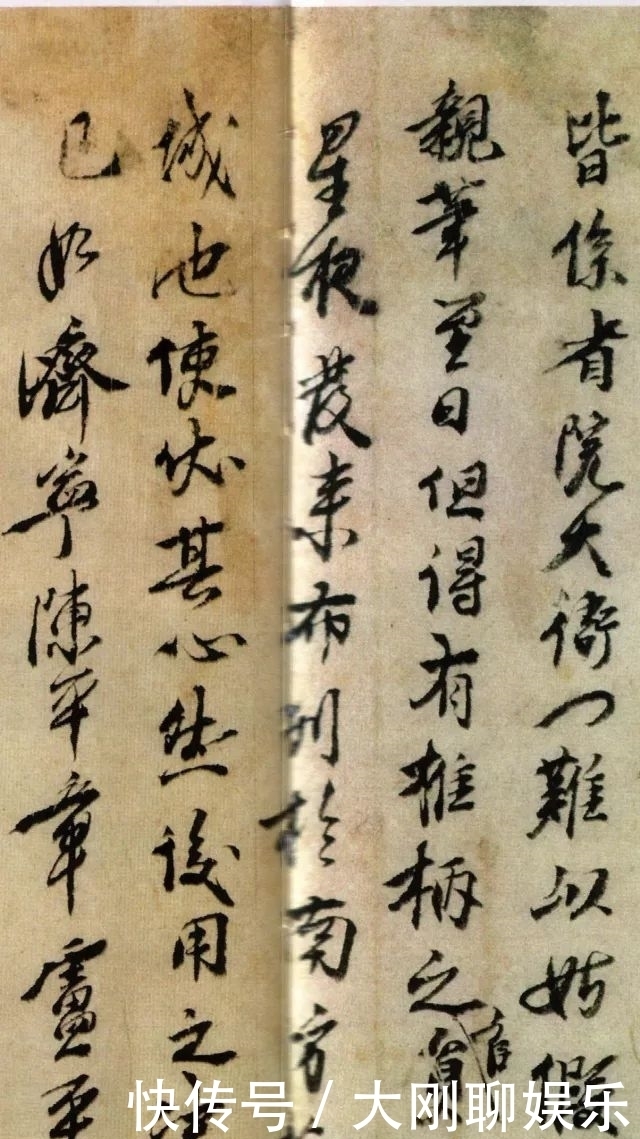 皆係省院大衙门難以姑假
親筆至日但得有權柄之官
星夜發来布列於南方
城池使伏其心然後用之
已如濟寧陳平章盧平
快传号 / 大刚聊娱乐